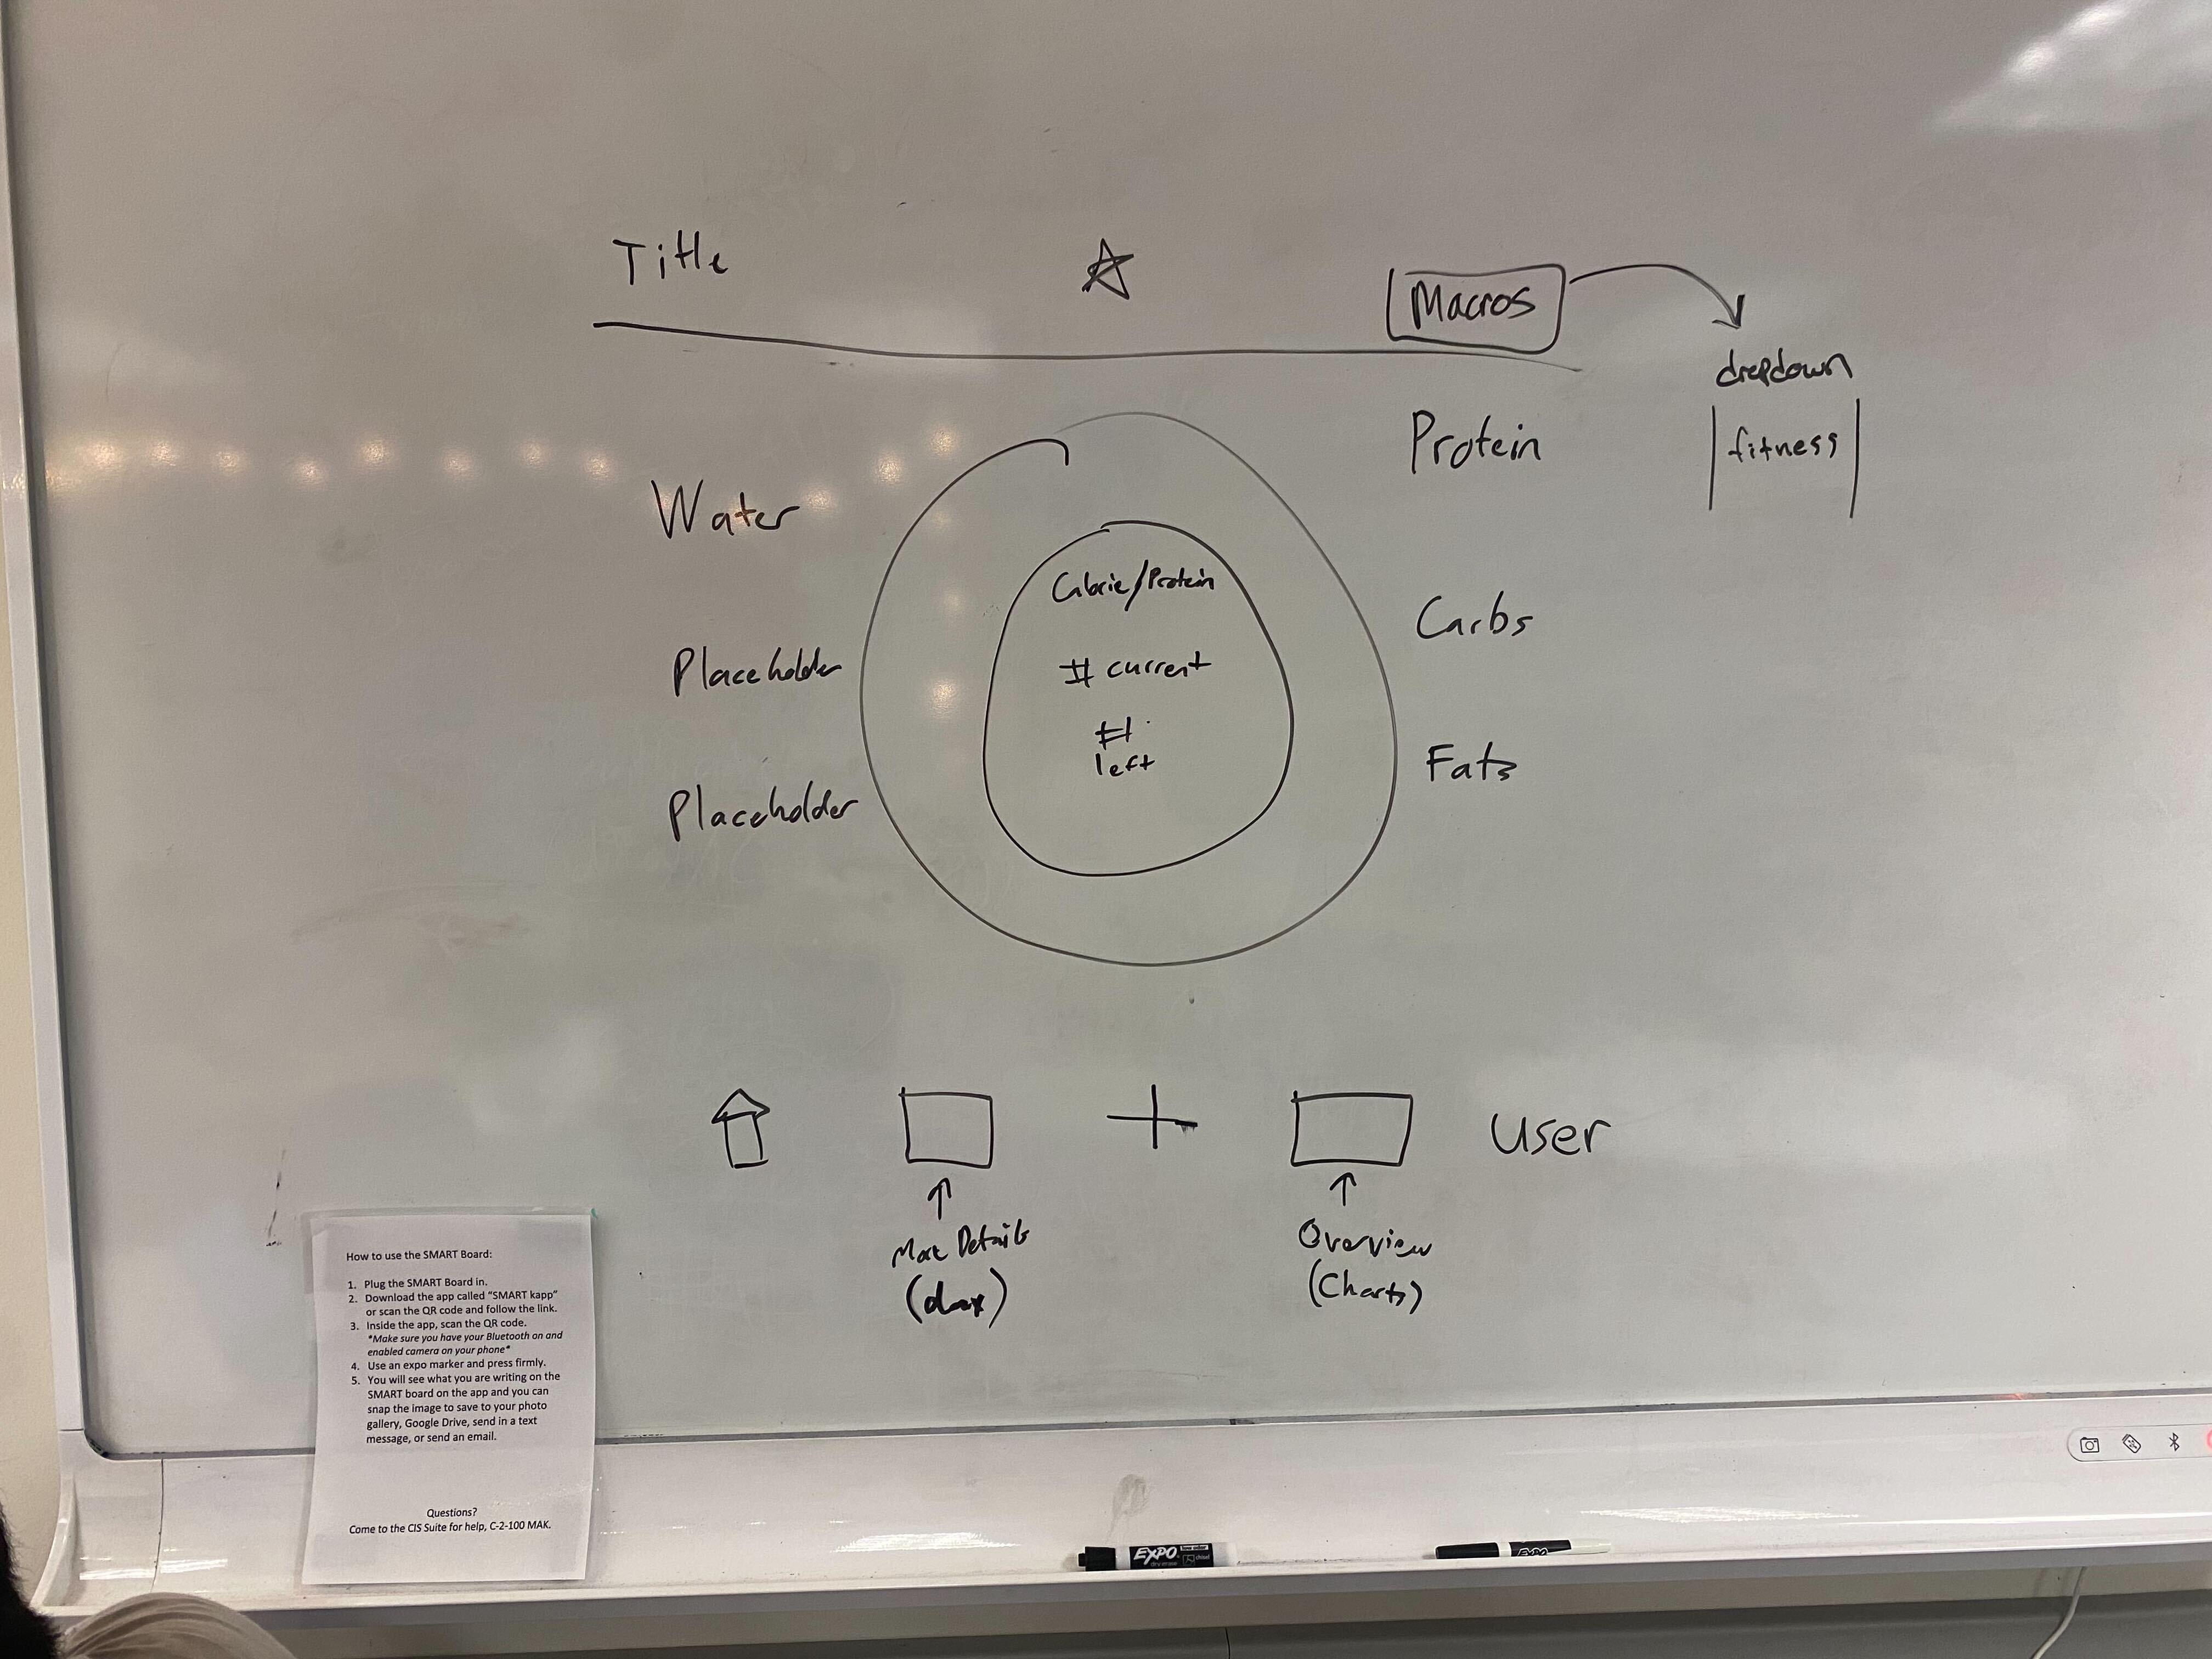 Title
Macros
dropdown
fitness
Protein
Water
Calorie/Protein
# current
#
left
Carbs
Placeholder
Fats
Placeholder
User
More Details
Overview
(Charts)
How to use the SMART Board:
1. Plug the SMART Board in.
2. Download the app called "SMART kapp"
or scan the QR code and follow the link.
3. Inside the app, scan the QR code.
*Make sure you have your Bluetooth on and
enabled camera on your phone*
4. Use an expo marker and press firmly.
5. You will see what you are writing on the
SMART board on the app and you can
snap the image to save to your photo
gallery, Google Drive, send in a text
message, or send an email.
Questions?
Come to the CIS Suite for help, C-2-100 MAK.
EXPO
EXPO